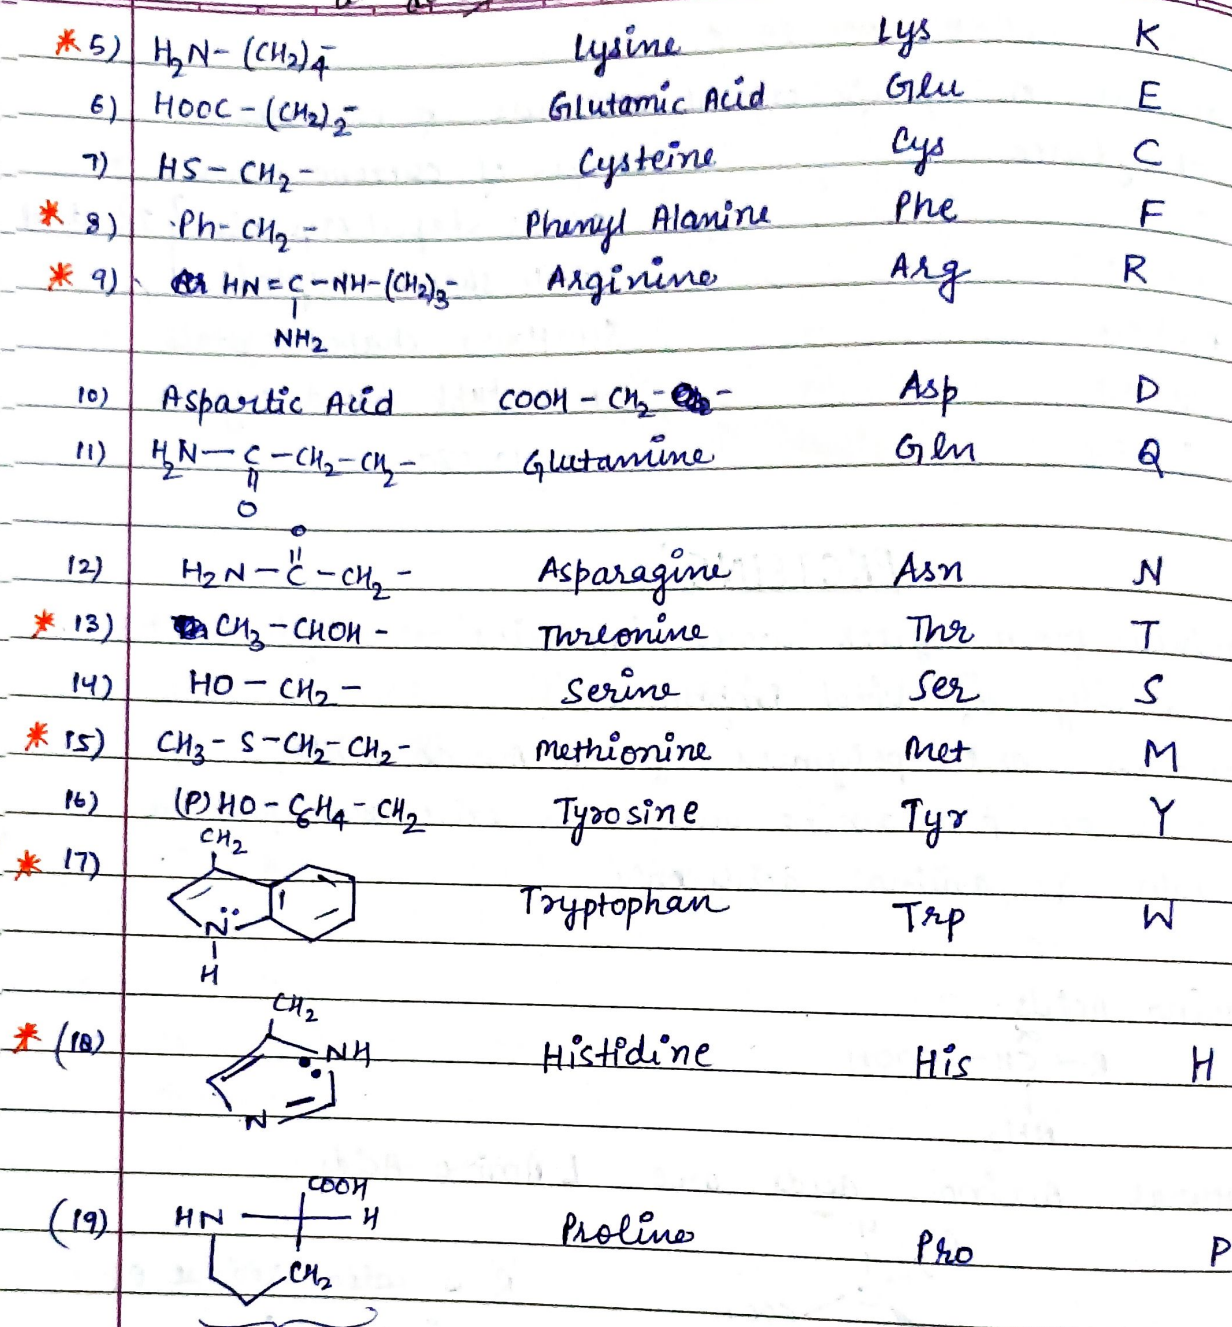 * 5) H2N- (CH2)4- Lysine Lys K
6) HOOC - (CH2)2- Glutamic Acid Glu E
7) HS - CH2 - Cysteine Cys C
* 8) Ph- CH2 - Phenyl Alanine Phe F
* 9) HN = C - NH - (CH2)3- Arginine Arg R
NH2
10) Aspartic Acid COOH - CH2 - Asp D
11) H2N - C - CH2 - CH2 - Glutamine Gln Q
O
O
12) H2N - C - CH2 - Asparagine Asn N
* 13) CH3 - CHOH - Threonine Thr T
14) HO - CH2 - Serine Ser S
* 15) CH3 - S - CH2 - CH2 - Methionine Met M
16) (P) HO - C6H4 - CH2 Tyrosine Tyr Y
CH2
* 17) Tryptophan Trp W
N
H
CH2
* (18) NH Histidine His H
N
COOH
(19) HN H Proline Pro P
CH2